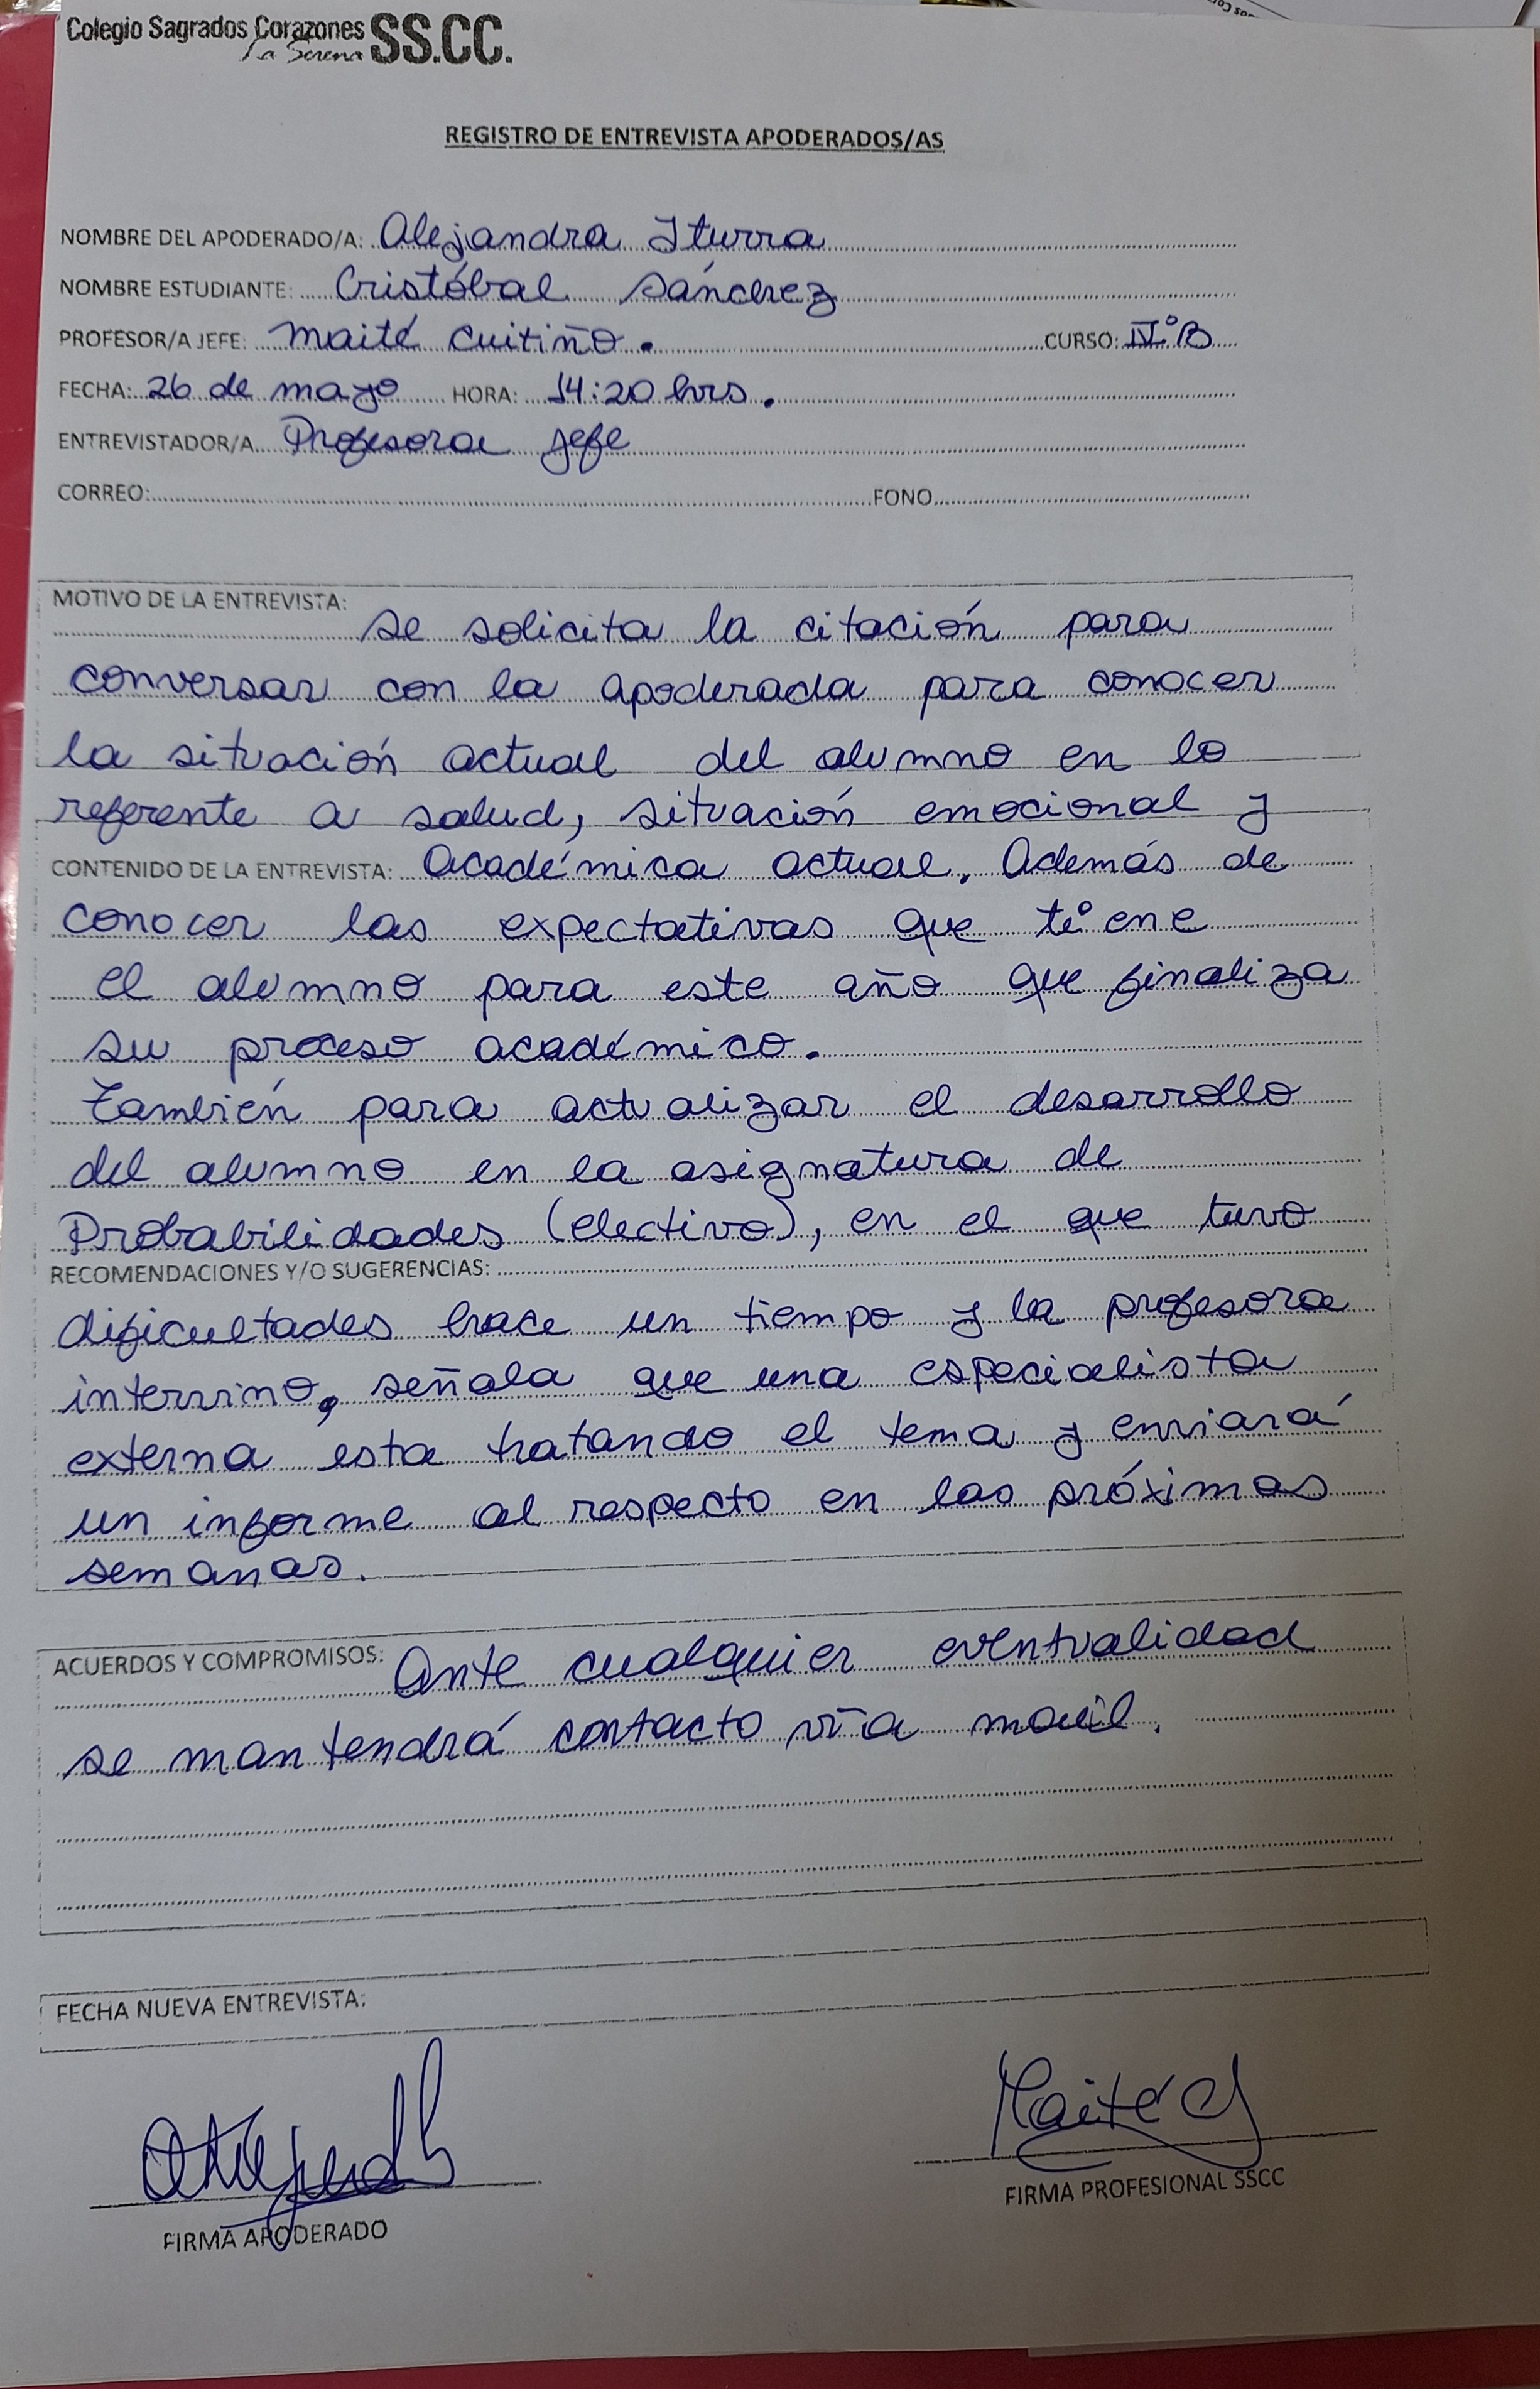 Colegio Sagrados Corazones SS.CC.
La Serena
REGISTRO DE ENTREVISTA APODERADOS/AS
NOMBRE DEL APODERADO/A: Alejandra Iturra
NOMBRE ESTUDIANTE: Cristóbal Sánchez
PROFESOR/A JEFE: Maité Cuitiño. CURSO: IV°B
FECHA: 26 de mayo HORA: 14:20 hrs.
ENTREVISTADOR/A Profesora jefe
CORREO: FONO
MOTIVO DE LA ENTREVISTA: se solicita la citación para
conversar con la apoderada para conocer
la situación actual del alumno en lo
referente a salud, situación emocional y
CONTENIDO DE LA ENTREVISTA: académica actual. Además de
conocer las expectativas que tiene
el alumno para este año que finaliza
su proceso académico.
También para actualizar el desarrollo
del alumno en la asignatura de
Probabilidades (electivo), en el que tuvo
RECOMENDACIONES Y/O SUGERENCIAS:
dificultades hace un tiempo y la profesora
intervino, señala que una especialista
externa esta tratando el tema y enviará
un informe al respecto en las próximas
semanas.
ACUERDOS Y COMPROMISOS: Ante cualquier eventualidad
se mantendrá contacto vía movil.
FECHA NUEVA ENTREVISTA:
Maité C
FIRMA APODERADO
FIRMA PROFESIONAL SSCC